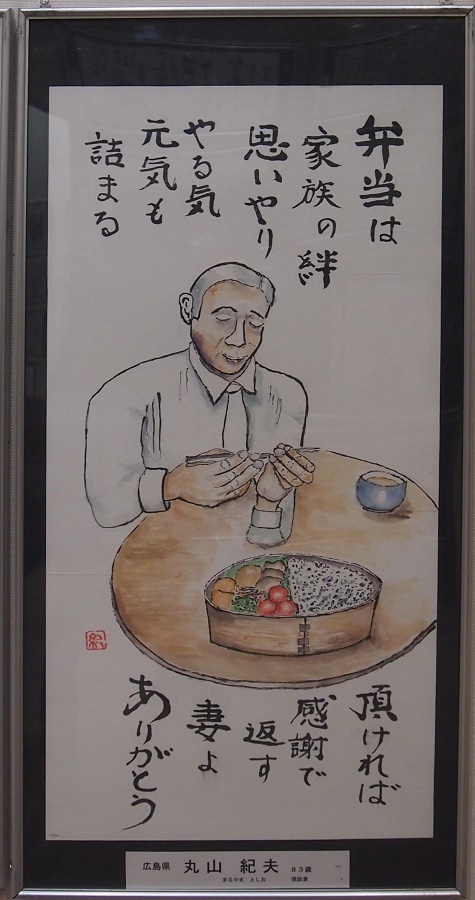 弁当は
家族の絆
思いやり
やる気
元気も
詰まる
頂ければ
感謝で
返す
妻よ
ありがとう
紀
広島県 丸山 紀夫 83歳
まるやま としお